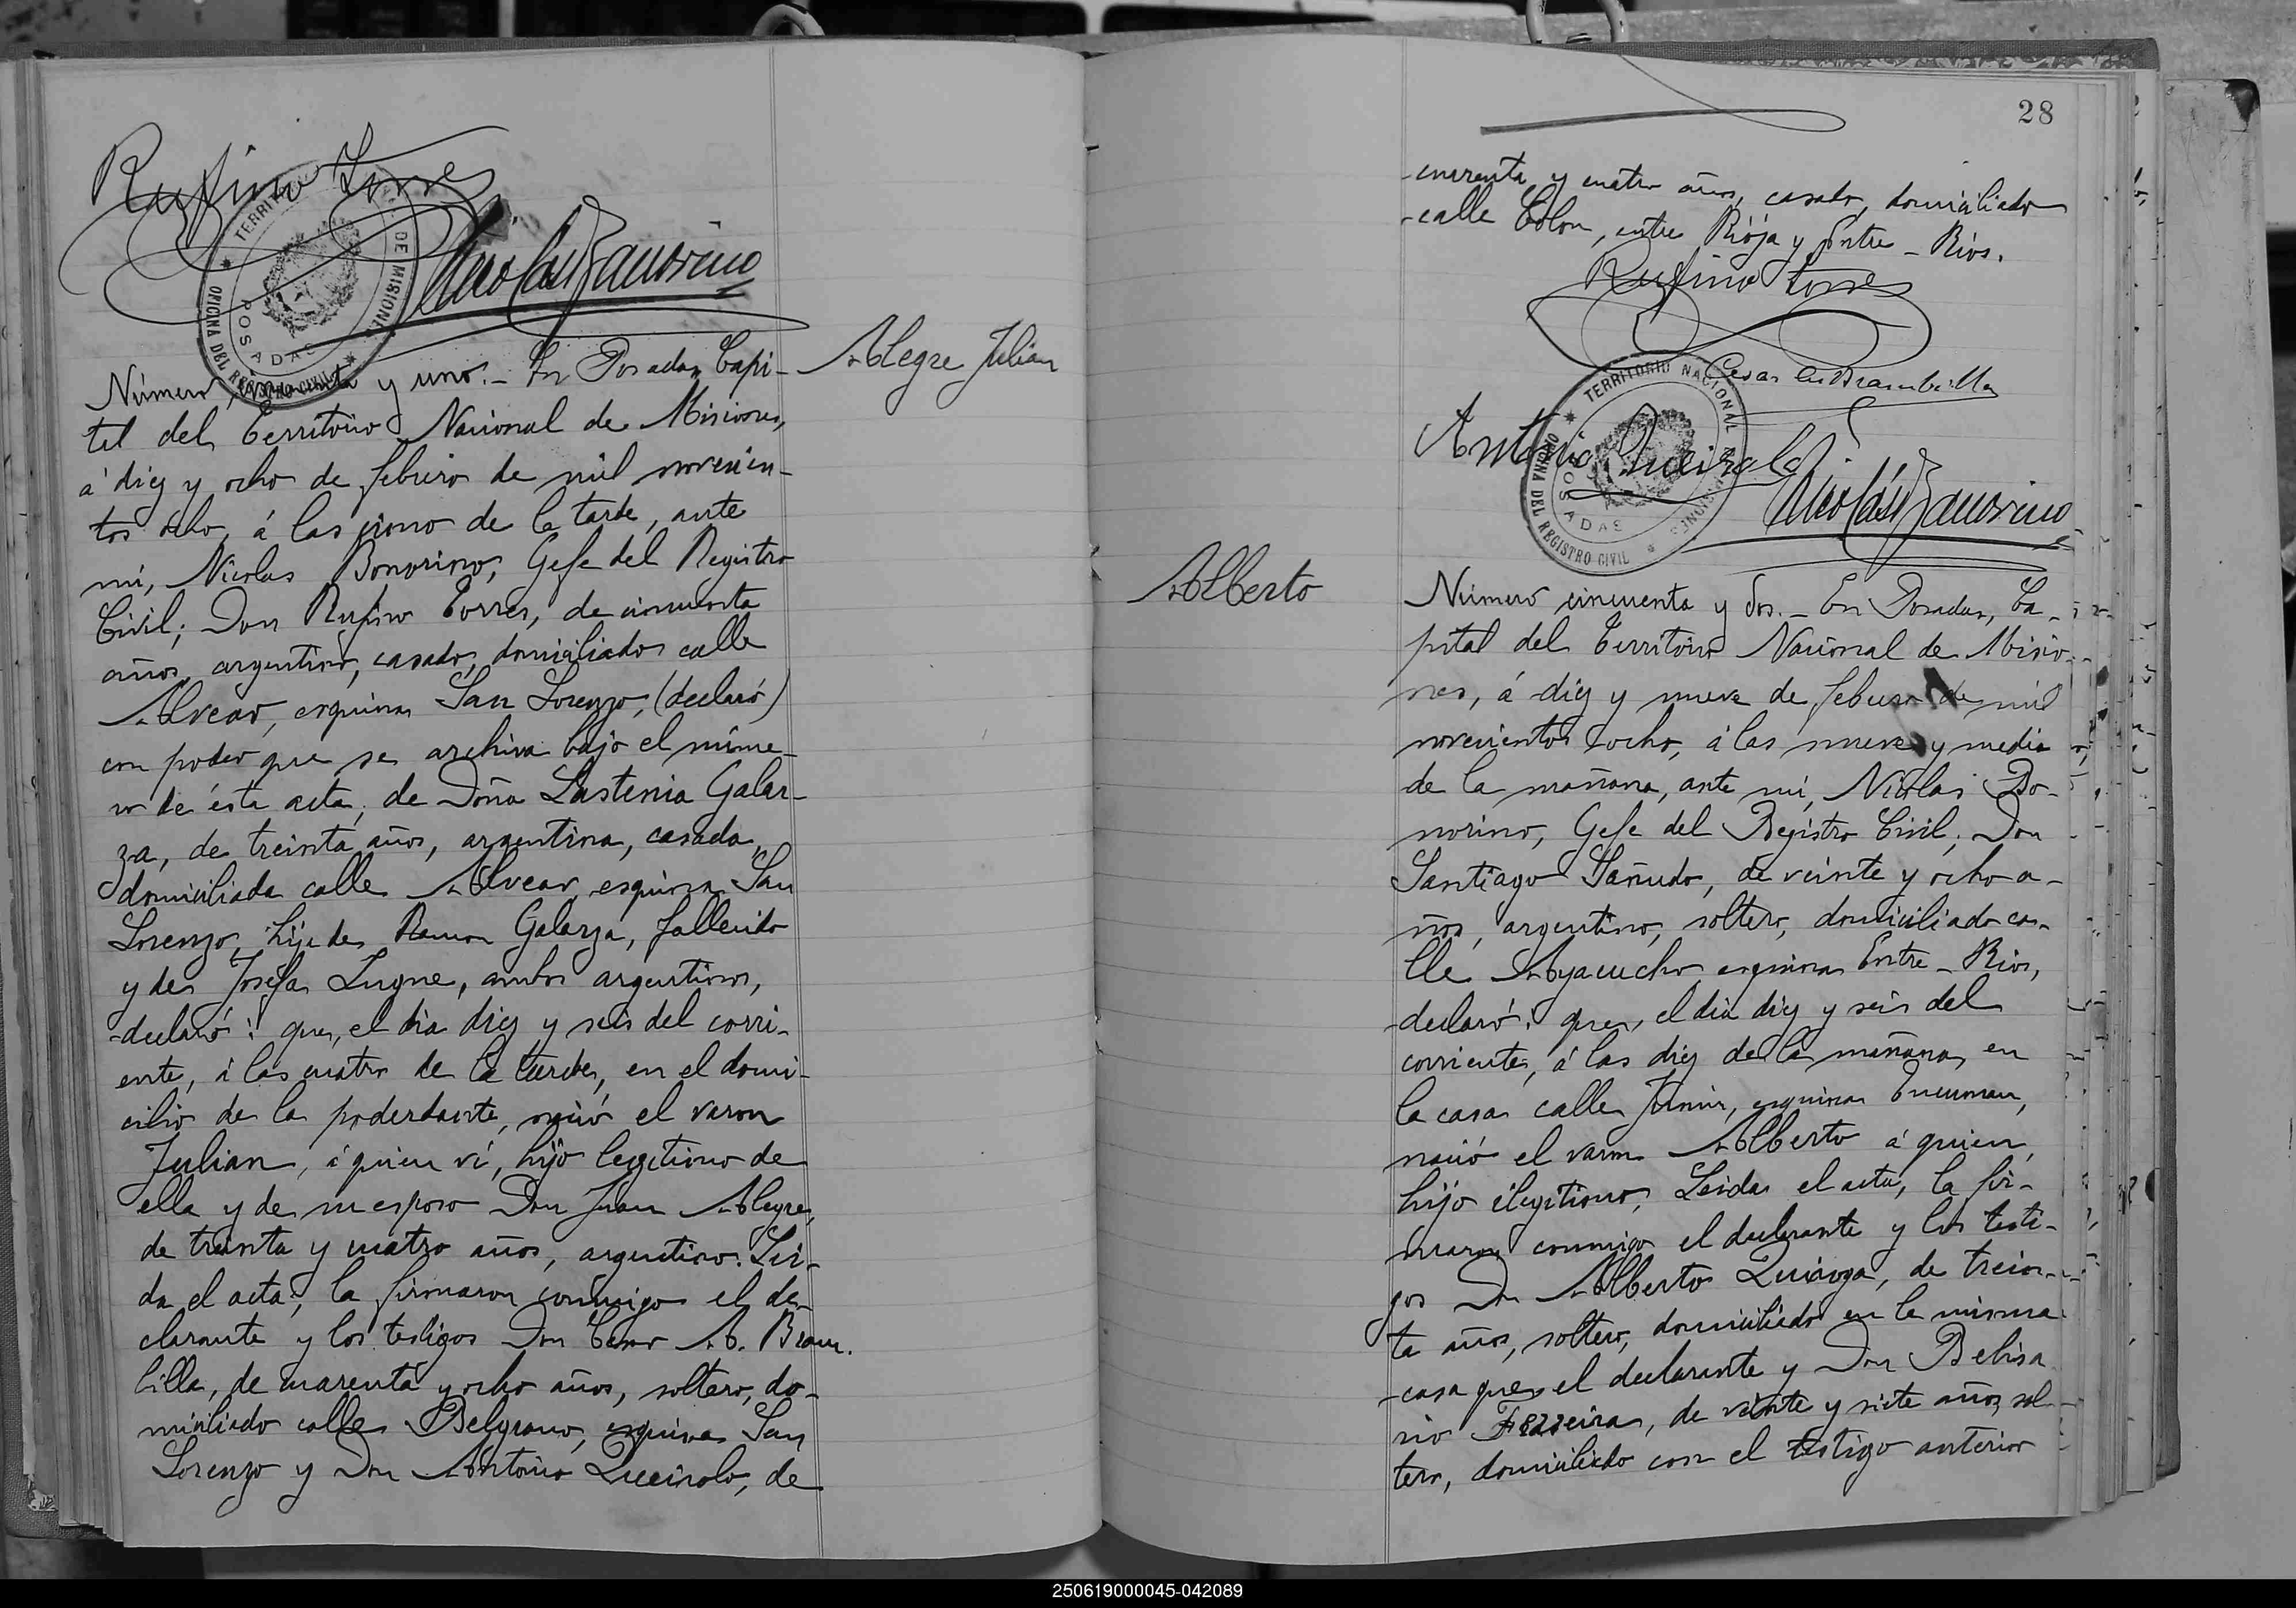 Rufino Torres
Nicolás Bonorino
TERRITORIO DE MISIONES
OFICINA DEL REGISTRO CIVIL
POSADAS
Alegre Julian
Número cincuenta y uno.- En Posadas, Capi-
tal del Territorio Nacional de Misiones,
á diez y ocho de febrero de mil novecien-
tos ocho, á las cinco de la tarde, ante
mi, Nicolas Bonorino, Gefe del Registro
Civil; Don Rufino Torres, de cincuenta
años, argentino, casado, domiciliado calle
Alvear, esquina San Lorenzo, (declaró)
con poder que se archiva bajo el núme-
ro de ésta acta, de Doña Lastenia Galar-
za, de treinta años, argentina, casada,
domiciliada calle Alvear esquina San
Lorenzo, hija de Ramon Galarza, fallecido
y de Josefa Lugne, ambos argentinos,
declaró: que, el dia diez y seis del corri-
ente, á las cuatro de la tarde, en el domi-
cilio de la poderdante, nació el varon
Julian, á quien ví, hijo legitimo de
ella y de su esposo Don Juan Alegre,
de treinta y cuatro años, argentino. Lei-
da el acta, la firmaron conmigo el de-
clarante y los testigos Don Cesar A. Bram-
billa, de cuarenta y ocho años, soltero, do-
miciliado calle Belgrano, esquina San
Lorenzo y Don Antonio Queirolo, de
28
cuarenta y cuatro años, casado, domiciliado
calle Colon, entre Rioja y Entre-Rios.
Rufino Torres
Cesar A. Brambilla
Antonio Queirolo
Nicolás Bonorino
TERRITORIO NACIONAL DE MISIONES
OFICINA DEL REGISTRO CIVIL
POSADAS
Alberto
Número cincuenta y dos.- En Posadas, Ca-
pital del Territorio Nacional de Misio-
nes, á diez y nueve de febrero de mil
novecientos ocho, á las nueve y media
de la mañana, ante mi, Nicolas Bo-
norino, Gefe del Registro Civil; Don
Santiago Sañudo, de veinte y ocho a-
ños, argentino, soltero, domiciliado ca-
lle Ayacucho esquina Entre-Rios,
declaró: que, el dia diez y seis del
corriente, á las diez de la mañana, en
la casa calle Junin, esquina Tucuman,
nació el varon Alberto á quien,
hijo ilegitimo. Leida el acta, la fir-
maron conmigo el declarante y los testi-
gos Don Alberto Quiroga, de trein-
ta años, soltero, domiciliado en la misma
casa que el declarante y Don Belisa
rio Ferreira, de veinte y siete años, sol-
tero, domiciliado con el testigo anterior
250619000045-042089